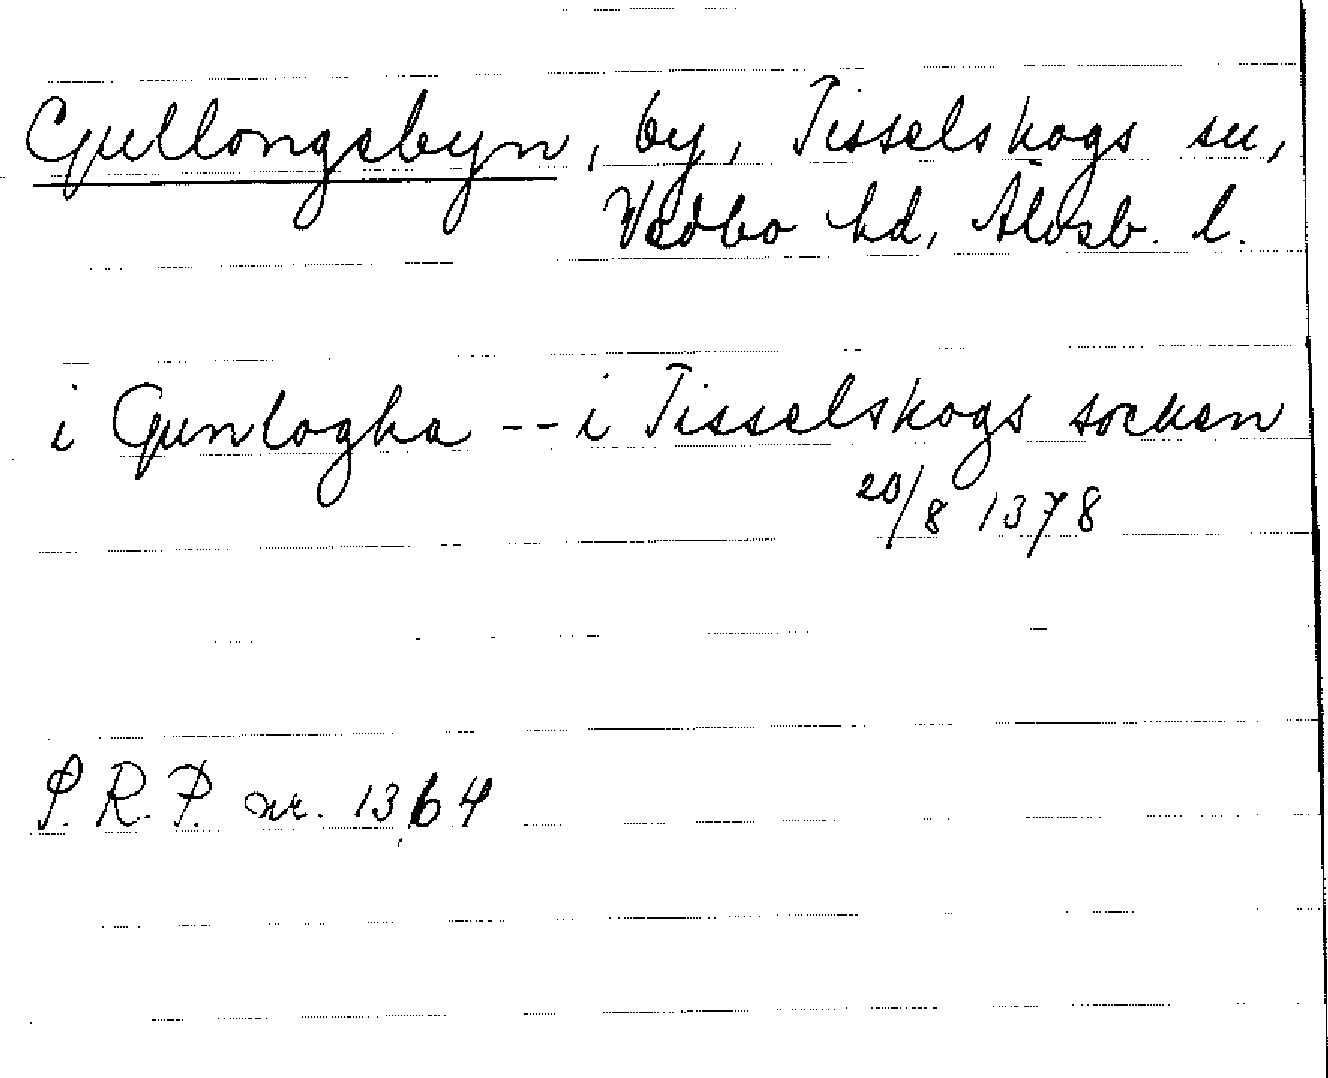 Gullongsbyn, by, Tisselskogs sn,
Vedbo hd, Älvsb. l.
i Gunlogha -- i Tisselskogs socken
20/8 1378
S.R.P. nr. 1364